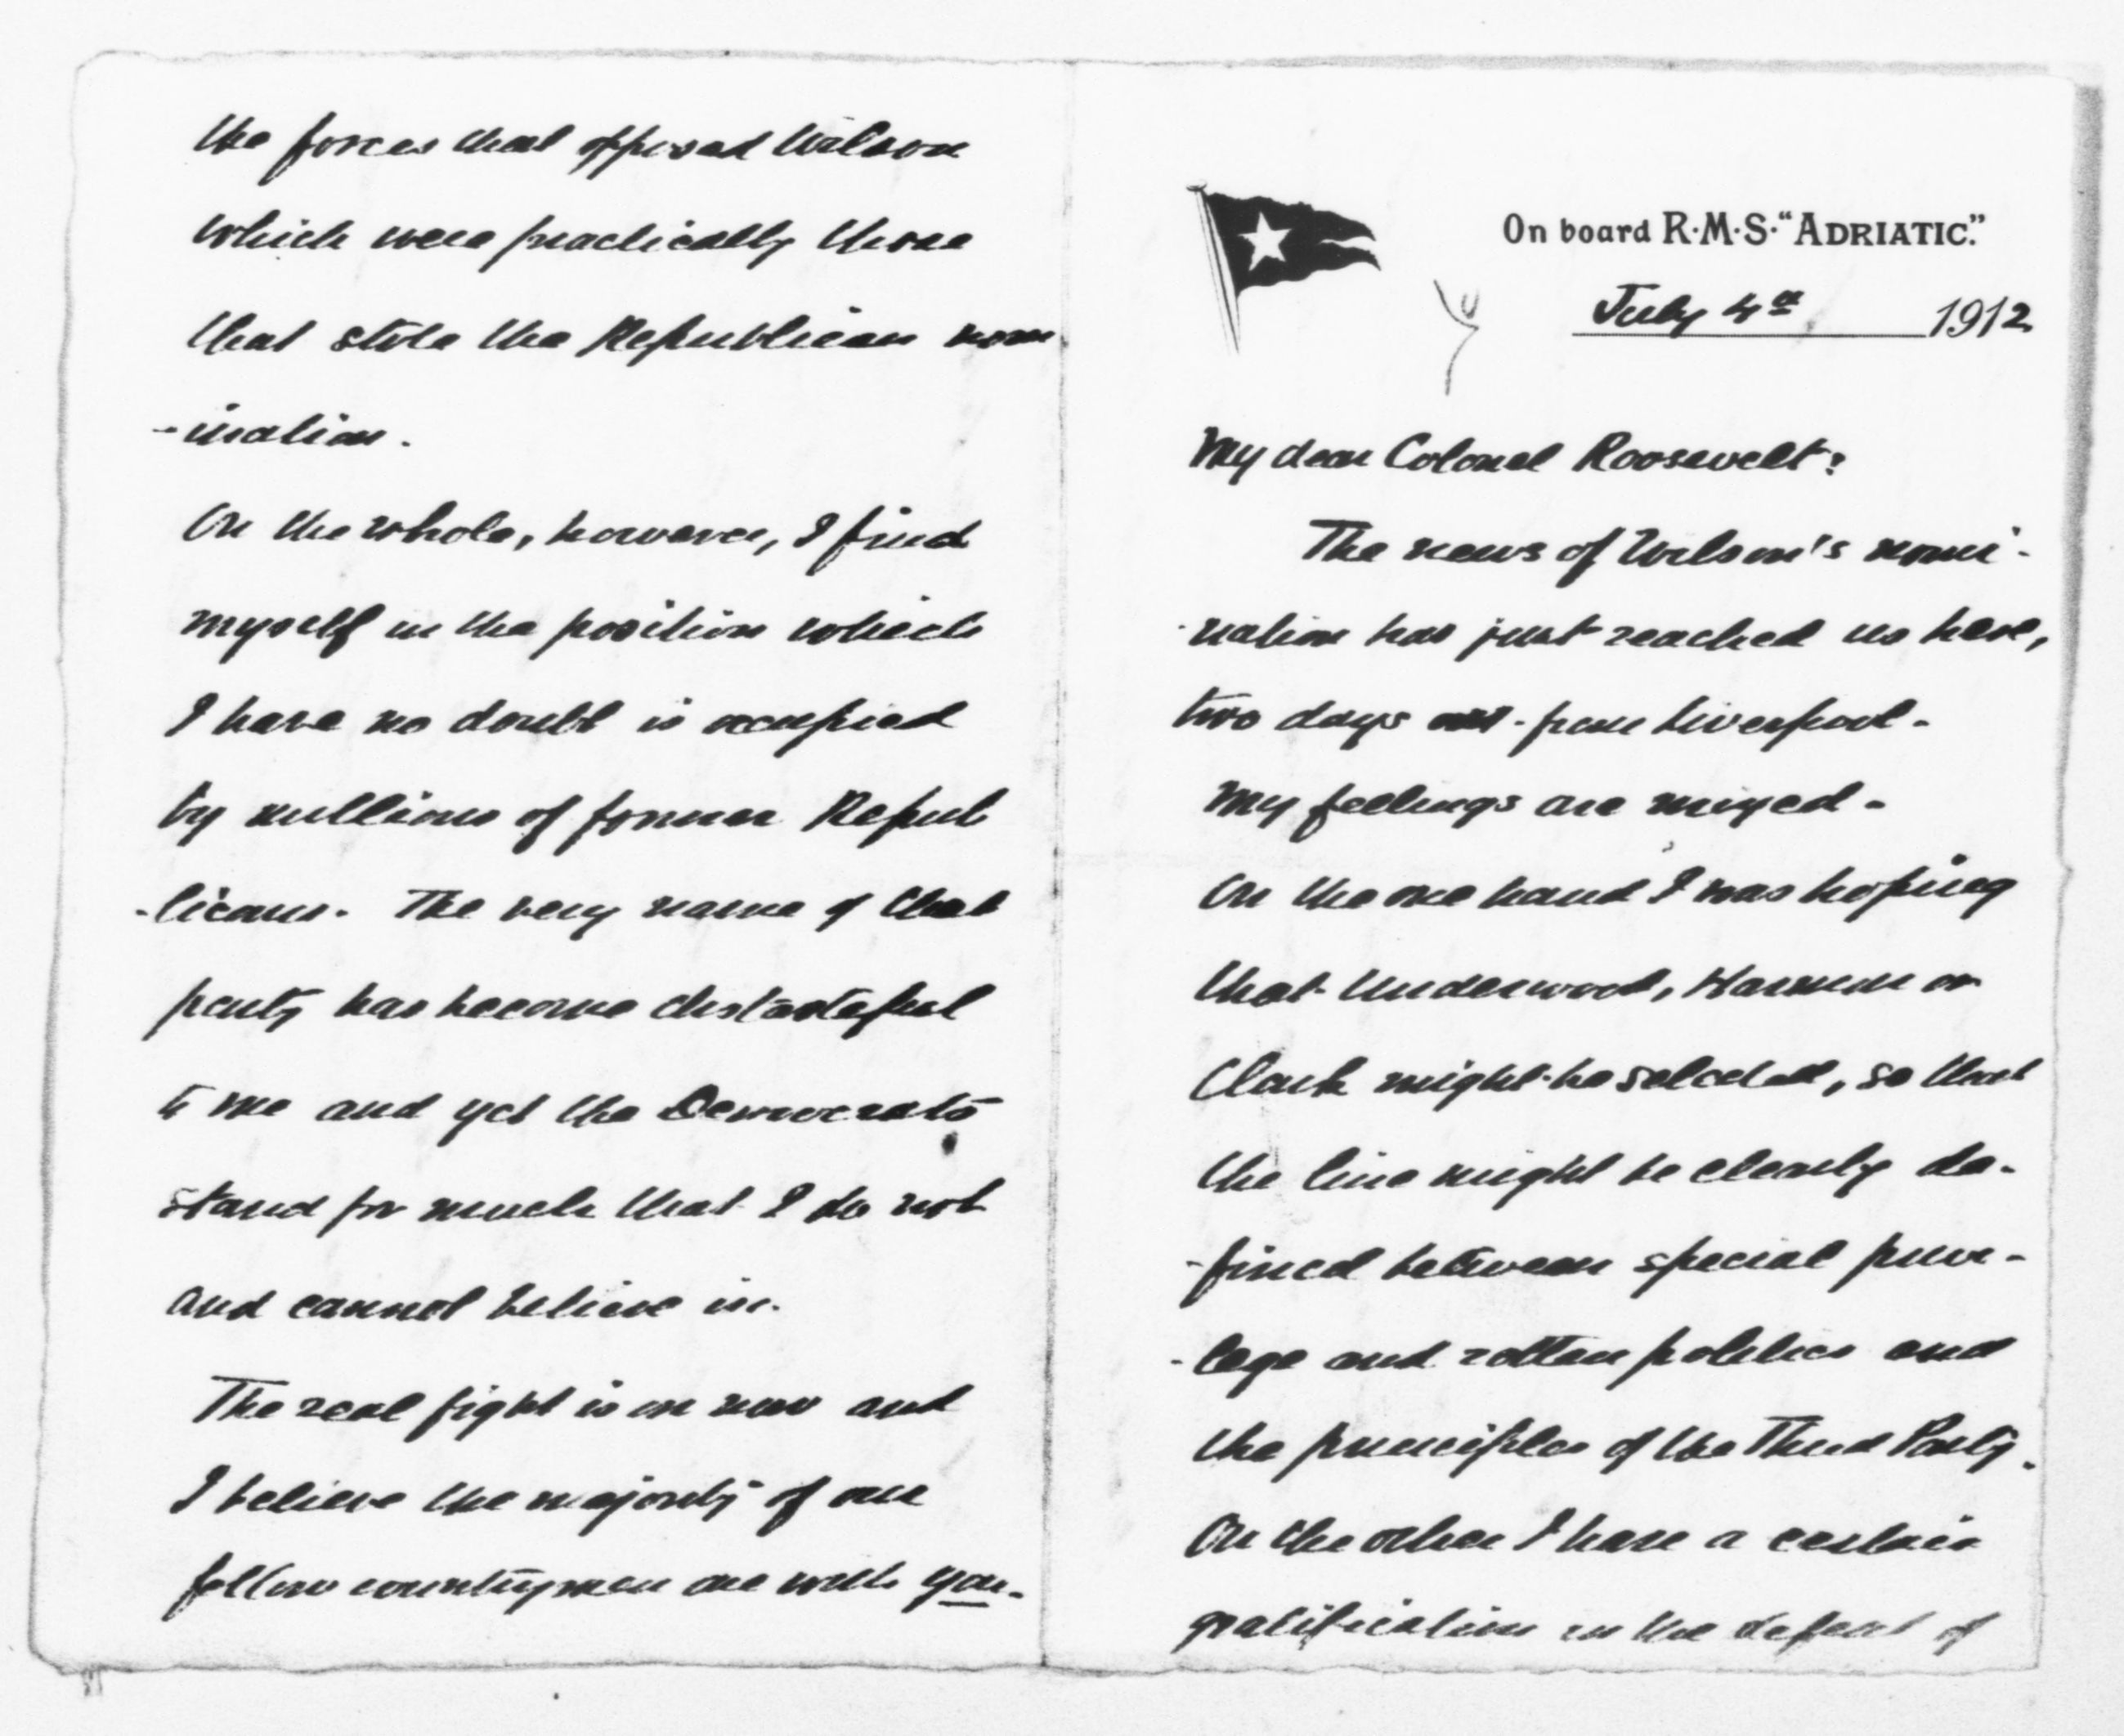 On board R·M·S·"ADRIATIC."
July 4th 1912
My dear Colonel Roosevelt:
The news of Wilson's nomi-
-nation has just reached us here,
two days out from Liverpool.
My feelings are mixed.
On the one hand I was hoping
that Underwood, Harmon or
Clark might be selected, so that
the line might be clearly de-
-fined between special privi-
-lege and rotten politics and
the principles of the Third Party.
On the other I have a certain
gratification in the defeat of
the forces that opposed Wilson
which were practically those
that stole the Republican nom
-ination.
On the whole, however, I find
myself in the position which
I have no doubt is occupied
by millions of former Repub
-licans. The very name of that
party has become distasteful
to me and yet the Democrats
stand for much that I do not
and cannot believe in.
The real fight is on now and
I believe the majority of our
fellow countrymen are with you.